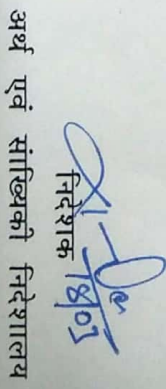 18/03
निदेशक
अर्थ एवं सांख्यिकी निदेशालय